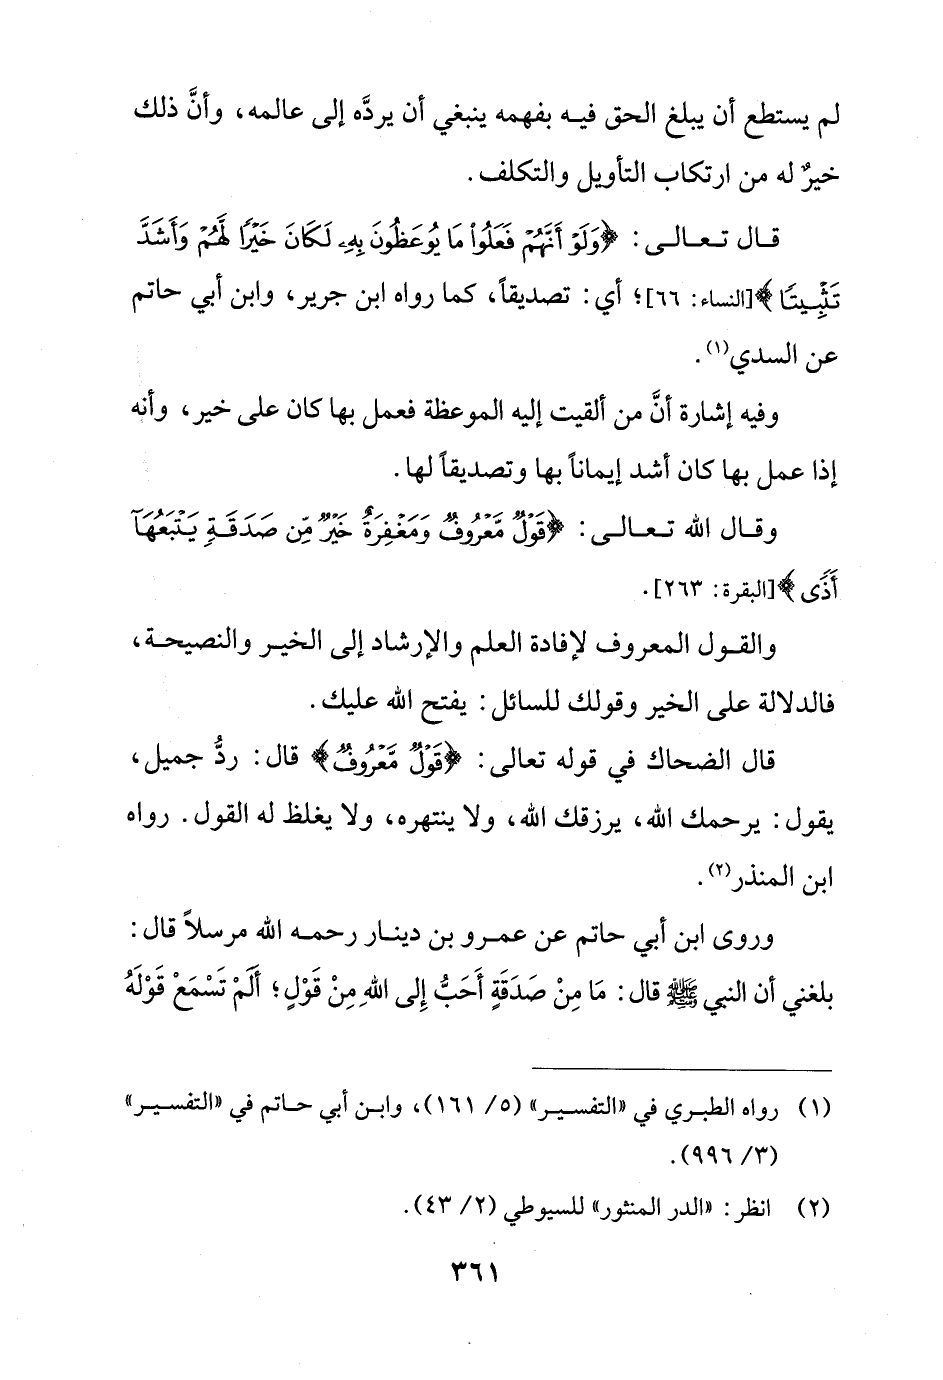 لم يستطع أن يبلغ الحق فيه بفهمه ينبغي أن يردَّه إلى عالمه، وأنَّ ذلك
خيرٌ له من ارتكاب التأويل والتكلف.
قال تعالى: ﴿وَلَوْ أَنَّهُمْ فَعَلُوا۟ مَا يُوعَظُونَ بِهِۦ لَكَانَ خَيْرًا لَّهُمْ وَأَشَدَّ
تَثْبِيتًا﴾[النساء: ٦٦]؛ أي: تصديقاً، كما رواه ابن جرير، وابن أبي حاتم
عن السدي(١).
وفيه إشارة أنَّ من ألقيت إليه الموعظة فعمل بها كان على خير، وأنه
إذا عمل بها كان أشد إيماناً بها وتصديقاً لها.
وقال الله تعالى: ﴿قَوْلٌ مَّعْرُوفٌ وَمَغْفِرَةٌ خَيْرٌ مِّن صَدَقَةٍ يَتْبَعُهَآ
أَذًى﴾[البقرة: ٢٦٣].
والقول المعروف لإفادة العلم والإرشاد إلى الخير والنصيحة،
فالدلالة على الخير وقولك للسائل: يفتح الله عليك.
قال الضحاك في قوله تعالى: ﴿قَوْلٌ مَّعْرُوفٌ﴾ قال: ردٌّ جميل،
يقول: يرحمك الله، يرزقك الله، ولا ينتهره، ولا يغلظ له القول. رواه
ابن المنذر(٢).
وروى ابن أبي حاتم عن عمرو بن دينار رحمه الله مرسلاً قال:
بلغني أن النبي ﷺ قال: مَا مِنْ صَدَقَةٍ أَحَبُّ إِلى اللهِ مِنْ قَوْلٍ؛ أَلَمْ تَسْمَعْ قَوْلَهُ
(١) رواه الطبري في «التفسير» (٥/ ١٦١)، وابن أبي حاتم في «التفسير»
(٣/ ٩٩٦).
(٢) انظر: «الدر المنثور» للسيوطي (٢/ ٤٣).
٣٦١